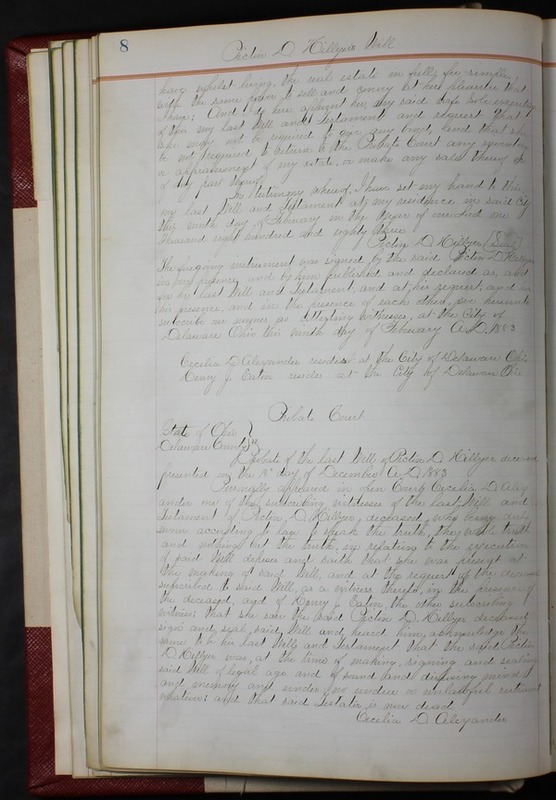 8
Rector D. Hillyer's Will
whilst living, the real estate in full, fee simple,
with the same power to sell and convey at her pleasure that
I have; And I do here appoint her my said wife Sole executrix
of this my last Will and Testament and request that
she may not be required to give any bond, and that she
be not required to return to the Probate Court any inventory
or appraisement of my estate, or make any sale thereof or
of any part thereof.
In testimony whereof, I have set my hand to this
my last Will and Testament at my residence in said City
this ninth day of February in the year of our Lord one
thousand eight hundred and eighty three.
D. Hillyer [Seal]
The foregoing instrument was signed by the said D. Hillyer
in our presence, and by him published and declared as, and
for his last Will and Testament, and at his request, and in
his presence, and in the presence of each other, we hereunto
subscribe our names as attesting witnesses, at the City of
Delaware Ohio this ninth day of February A.D. 1883
Cecelia D. Alexander resides at the City of Delaware Ohio
Henry J. Eaton resides at the City of Delaware Ohio
Probate Court
State of Ohio }
Delaware County } ss
Probate of the last Will of D. Hillyer deceased
presented on the day of December A.D. 1883
Personally appeared in open Court, Cecelia D. Alex
ander one of the subscribing witnesses of the last Will and
Testament of D. Hillyer, deceased, who being duly
sworn according to law to speak the truth, the whole truth
and nothing but the truth, in relating to the execution
of said Will deposes and saith that she was present at
the making of said Will, and at the request of the deceased
subscribed to said Will, as a witness thereto, in the presence of
the deceased, and of Henry J. Eaton, the other subscribing
witness: that she saw the said D. Hillyer deceased
sign and seal, said Will and heard him acknowledge the
same to be his last Will and Testament that the said
D. Hillyer was, at the time of making, signing and sealing
said Will of legal age and of sound and disposing mind
and memory and under no undue or unlawful restraint
whatever: and that said Testator is now dead
Cecelia D. Alexander